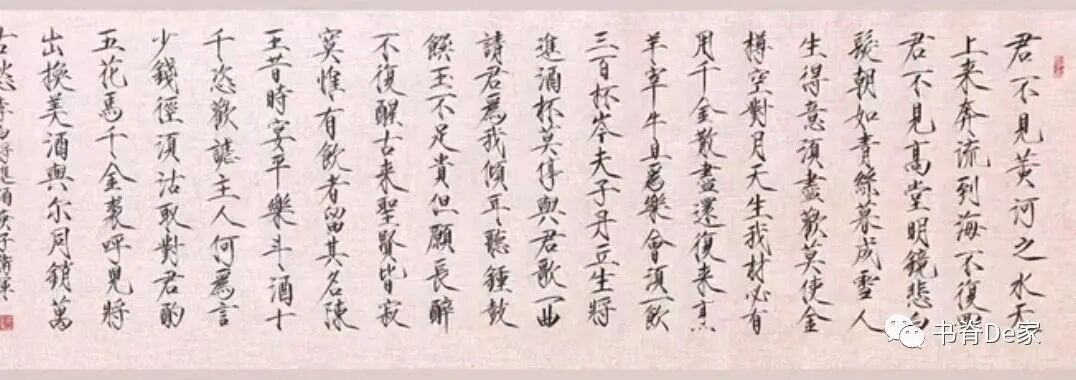 君不見黃河之水天
上来奔流到海不復回
君不見高堂明鏡悲白
髮朝如青絲暮成雪人
生得意須盡歡莫使金
樽空對月天生我材必有
用千金散盡還復来烹
羊宰牛且爲樂會須一飲
三百杯岑夫子丹丘生將
進酒杯莫停與君歌一曲
請君爲我傾耳聽鍾鼓
饌玉不足貴但願長醉
不復醒古来聖賢皆寂
寞惟有飲者留其名陳
王昔時宴平樂斗酒十
千恣歡謔主人何爲言
少錢徑須沽取對君酌
五花馬千金裘呼兒將
出換美酒與尔同銷萬
古愁李白將進酒
书脊De家